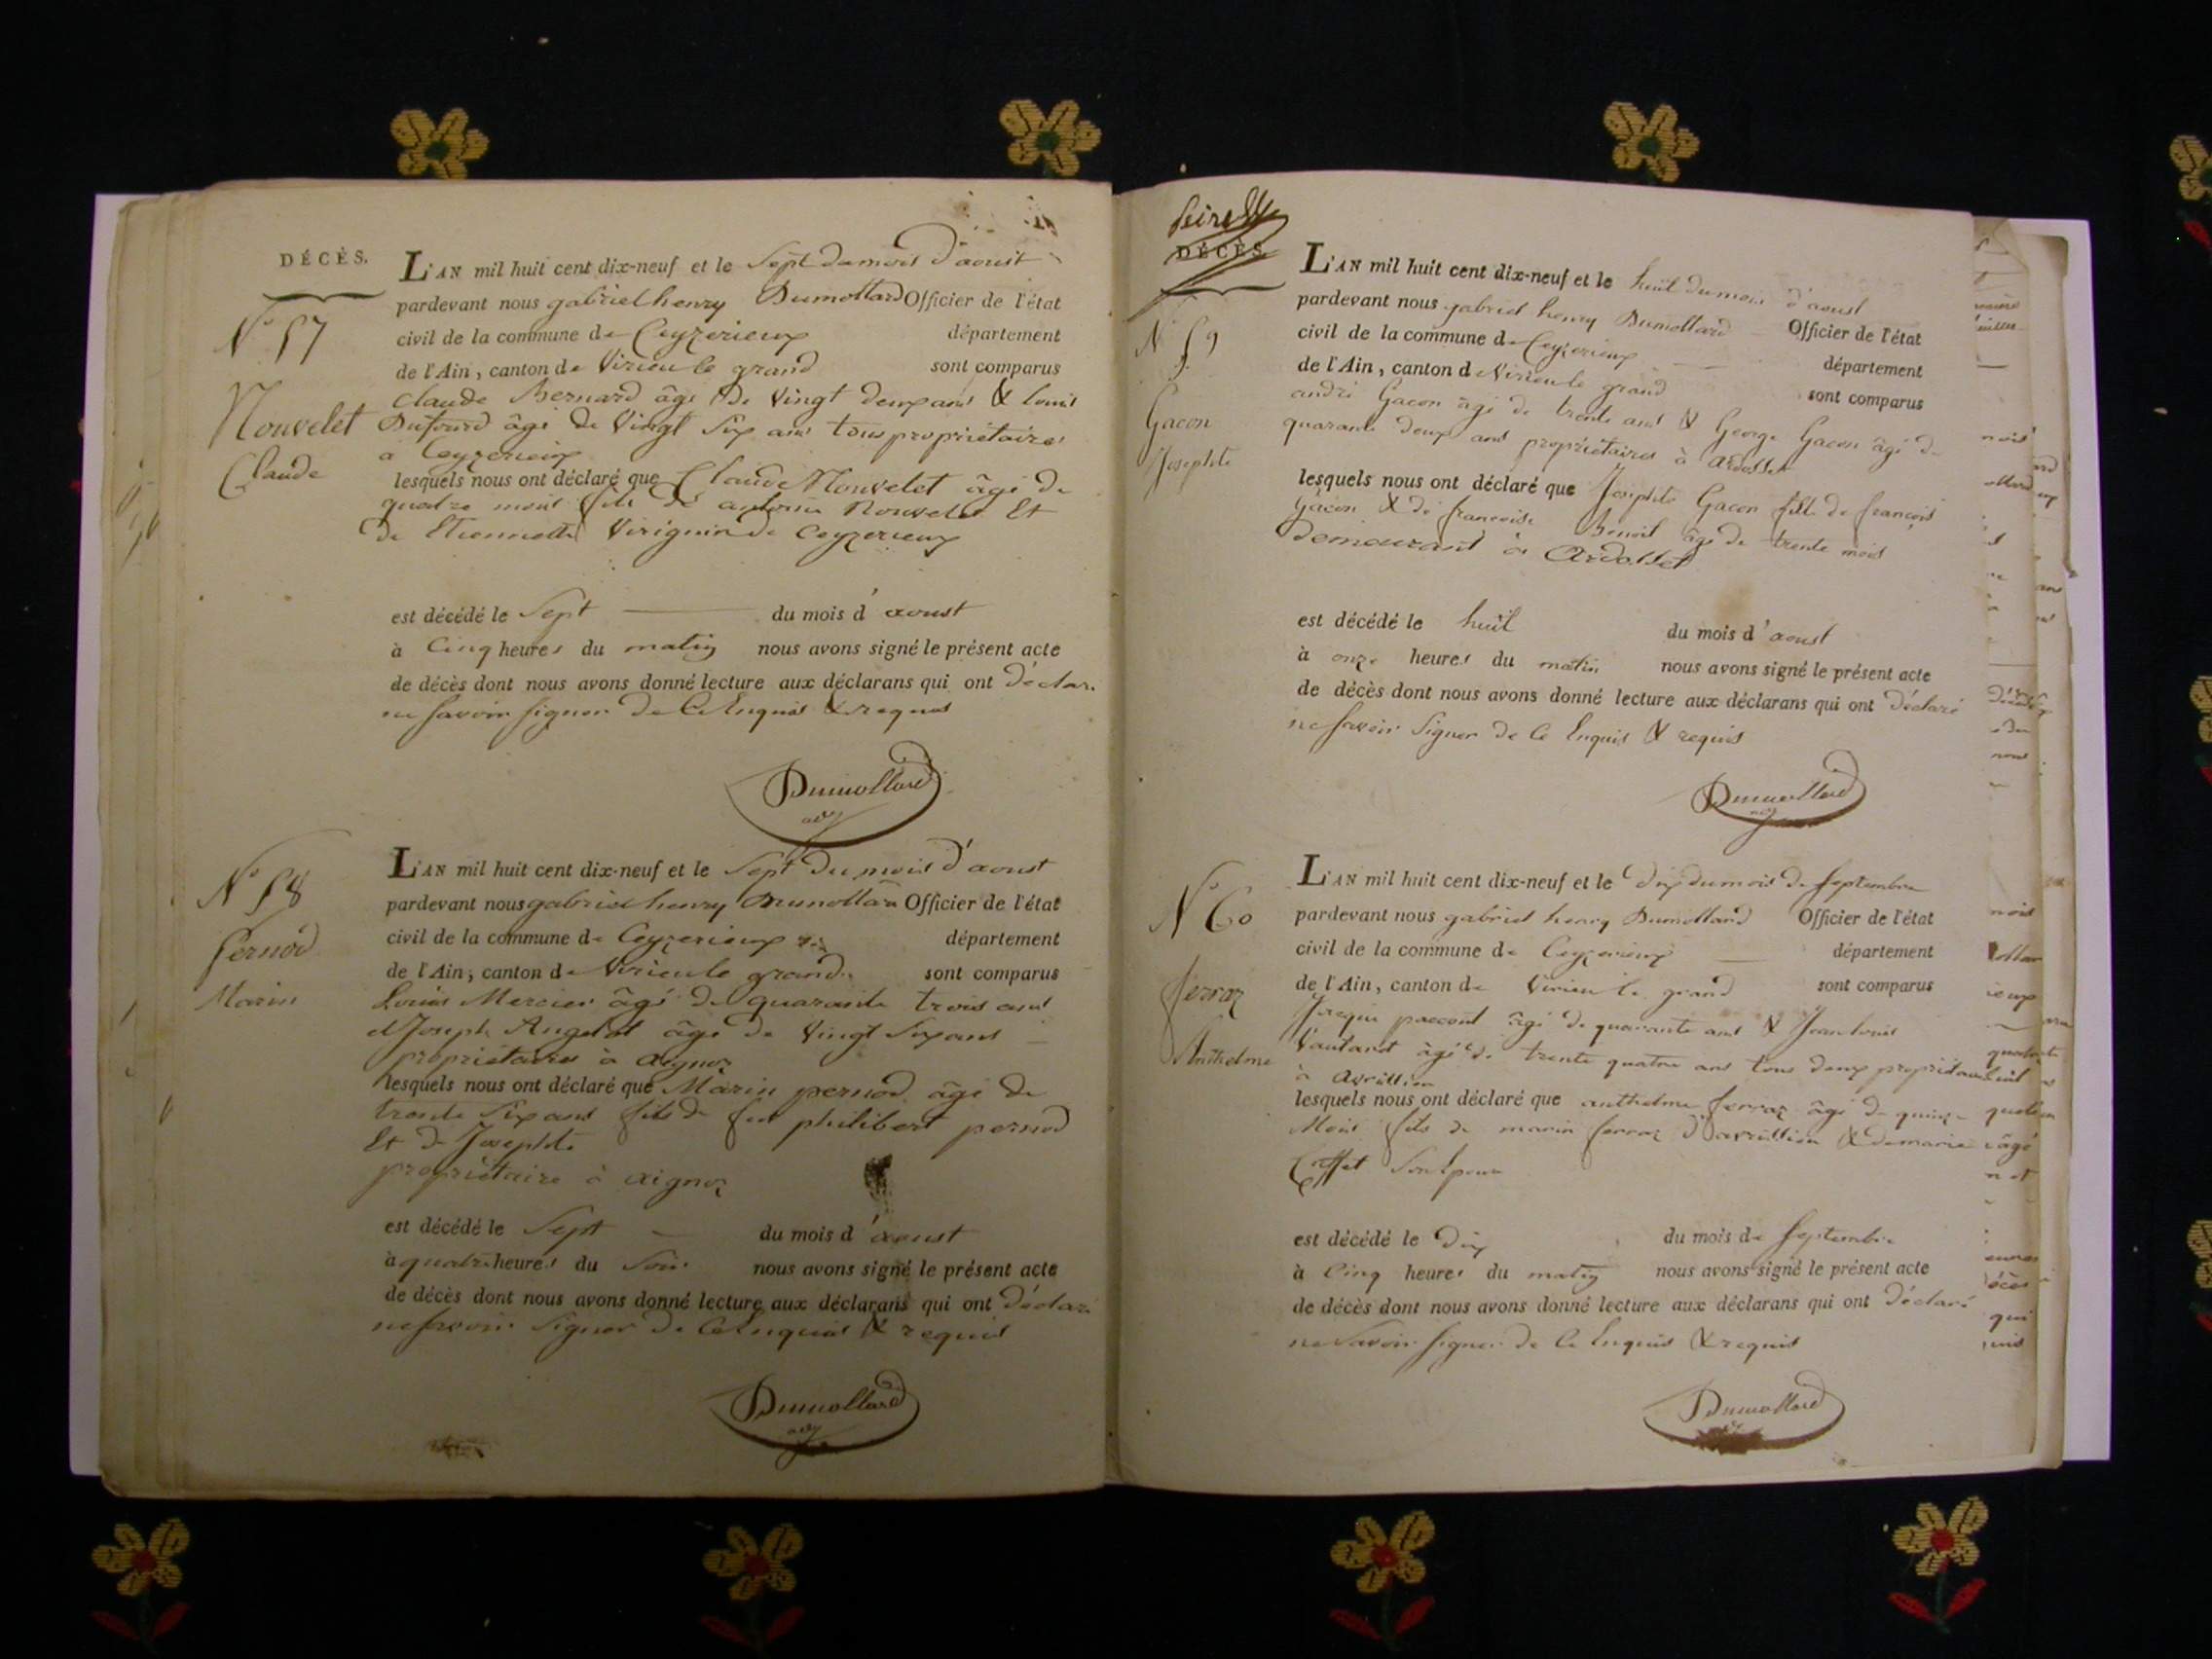 DÉCÈS.
L'AN mil huit cent dix-neuf et le Sept du mois d'aoust
pardevant nous gabriel henry Dumollard Officier de l'état
N° 57
civil de la commune de Ceyzerieux département
de l'Ain, canton de Virieu le grand sont comparus
Claude Bernard âgé de Vingt deux ans & louis
Nouvelet
Claude
Dufourd âgé de Vingt Six ans tous propriétaires
a Ceyzerieux
lesquels nous ont déclaré que Claude Nouvelet âgé de
quatre mois fils de antoine Nouvelet Et
de Etiennette Virignin de Ceyzerieux
est décédé le Sept du mois d'aoust
à Cinq heures du matin nous avons signé le présent acte
de décès dont nous avons donné lecture aux déclarans qui ont déclaré
ne Savoir signer de Ce Enquis & requis
Dumollard
N° 58
Pernod
Marin
L'AN mil huit cent dix-neuf et le Sept du mois d'aoust
pardevant nous gabriel henry Dumollard Officier de l'état
civil de la commune de Ceyzerieux département
de l'Ain, canton de Virieu le grand sont comparus
Louis Mercier âgé de quarante trois ans
et Joseph Angelot âgé de Vingt Six ans
propriétaires à aignoz
lesquels nous ont déclaré que Marin pernod âgé de
trente Six ans fils de feu philibert pernod
Et de Josephte
propriétaire à aignoz
est décédé le Sept du mois d'aoust
à quatre heures du Soir nous avons signé le présent acte
de décès dont nous avons donné lecture aux déclarans qui ont déclaré
ne Savoir Signer de Ce Enquis & requis
Dumollard
DÉCÈS.
N° 59
Gacon
Josephte
L'AN mil huit cent dix-neuf et le huit du mois d'aoust
pardevant nous gabriel henry Dumollard Officier de l'état
civil de la commune de Ceyzerieux département
de l'Ain, canton d Virieu le grand sont comparus
andré Gacon âgé de trente ans & George Gacon âgé de
quarante deux ans propriétaires à Ardosset
lesquels nous ont déclaré que Josephte Gacon fille de françois
Gacon & de françoise Benoit âgé de trente mois
Demeurant à Ardosset
est décédé le huit du mois d'aoust
à onze heures du matin nous avons signé le présent acte
de décès dont nous avons donné lecture aux déclarans qui ont déclaré
ne Savoir Signer de Ce Enquis & requis
Dumollard
N° 60
ferraz
Anthelme
L'AN mil huit cent dix-neuf et le dix du mois de Septembre
pardevant nous gabriel henry Dumollard Officier de l'état
civil de la commune de Ceyzerieux département
de l'Ain, canton de Virieu le grand sont comparus
Jacque âgé de quarante ans & Jean louis
âgé de trente quatre ans tous deux propriétaires
à avrillieu
lesquels nous ont déclaré que anthelme ferraz âgé de quinze
Mois fils de marin ferraz d'avrillieu & de marie
est décédé le dix du mois de Septembre
à Cinq heures du matin nous avons signé le présent acte
de décès dont nous avons donné lecture aux déclarans qui ont déclaré
ne Savoir signer de Ce Enquis & requis
Dumollard